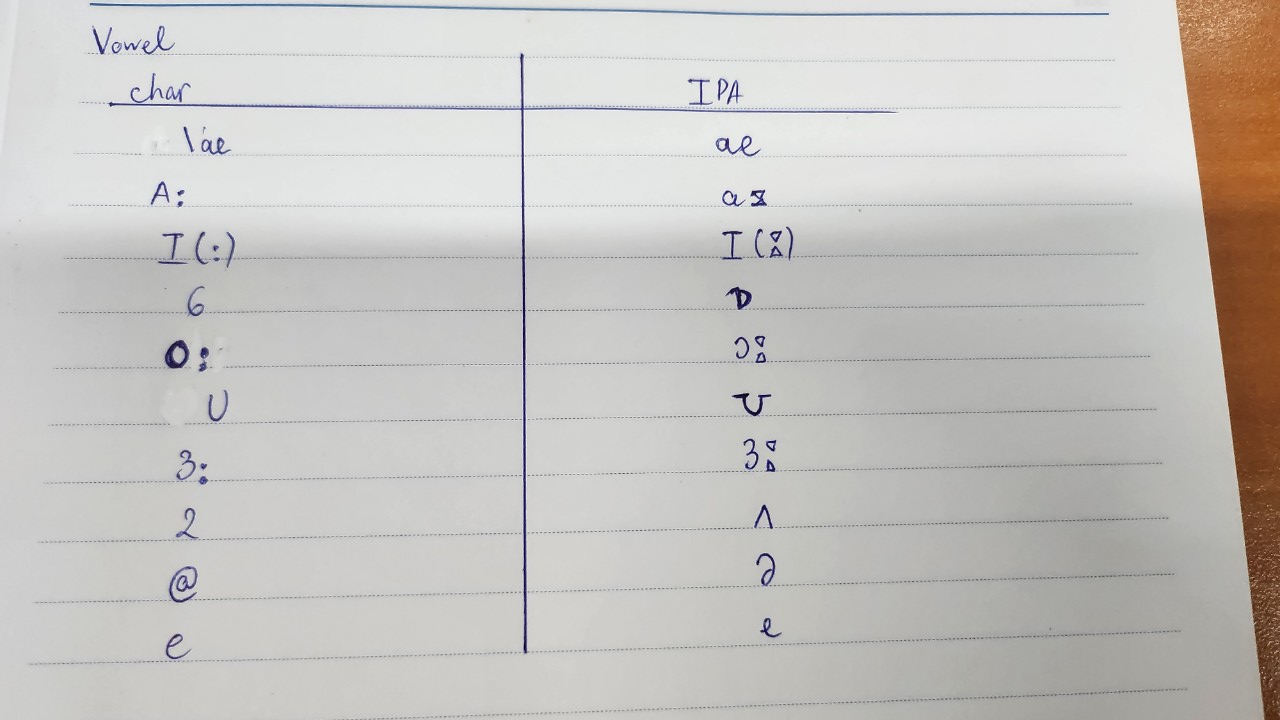 Vowel
char IPA
\ae æ
A: ɑː
I(:) I(ː)
6 ɒ
O: ɔː
U ʊ
3: ɜː
2 ʌ
@ ə
e e